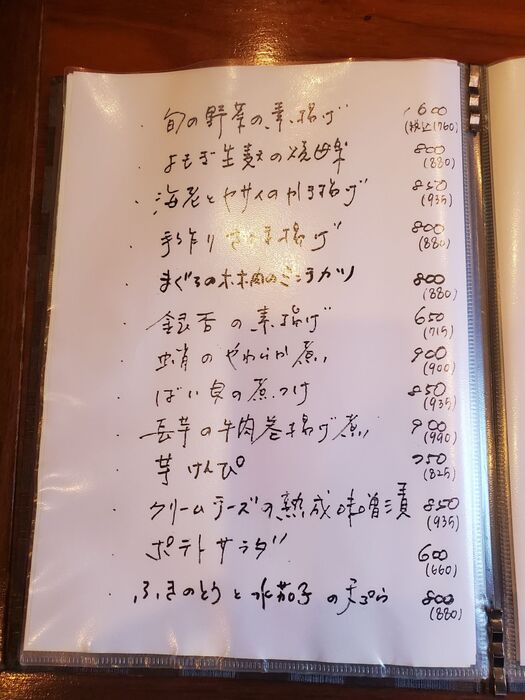 ・旬の野菜の素揚げ 600
(税込760)
・よもぎ生麩の田楽 800
(880)
・海老とヤサイのかき揚げ 850
(935)
・手作りさつま揚げ 800
(880)
・まぐろのホホ肉のミンチカツ 800
(880)
・銀杏の素揚げ 650
(715)
・蛸のやわらか煮 900
(900)
・ばい貝の煮つけ 850
(935)
・長芋の牛肉巻揚げ煮 900
(990)
・芋けんぴ 750
(825)
・クリームチーズの熟成味噌漬 850
(935)
・ポテトサラダ 600
(660)
・ふきのとうと水茄子の天ぷら 800
(880)